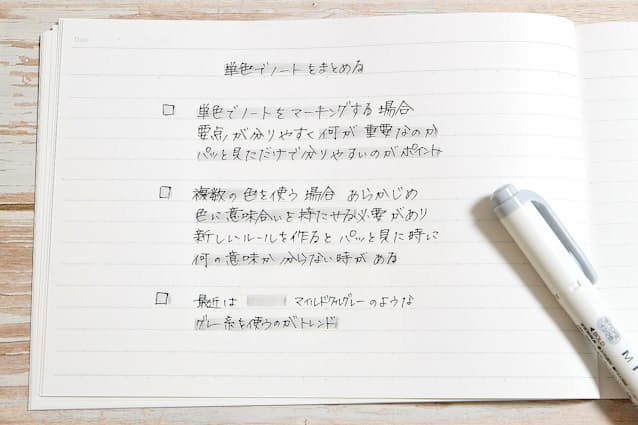 単色でノートをまとめる
単色でノートをマーキングする場合
要点が分りやすく何が重要なのか
パッと見ただけで分りやすいのがポイント
複数の色を使う場合 あらかじめ
色に意味合いを持たせる必要があり
新しいルールを作るとパッと見た時に
何の意味か分らない時がある
最近は マイルドクルグレーのような
グレー系を使うのがトレンド